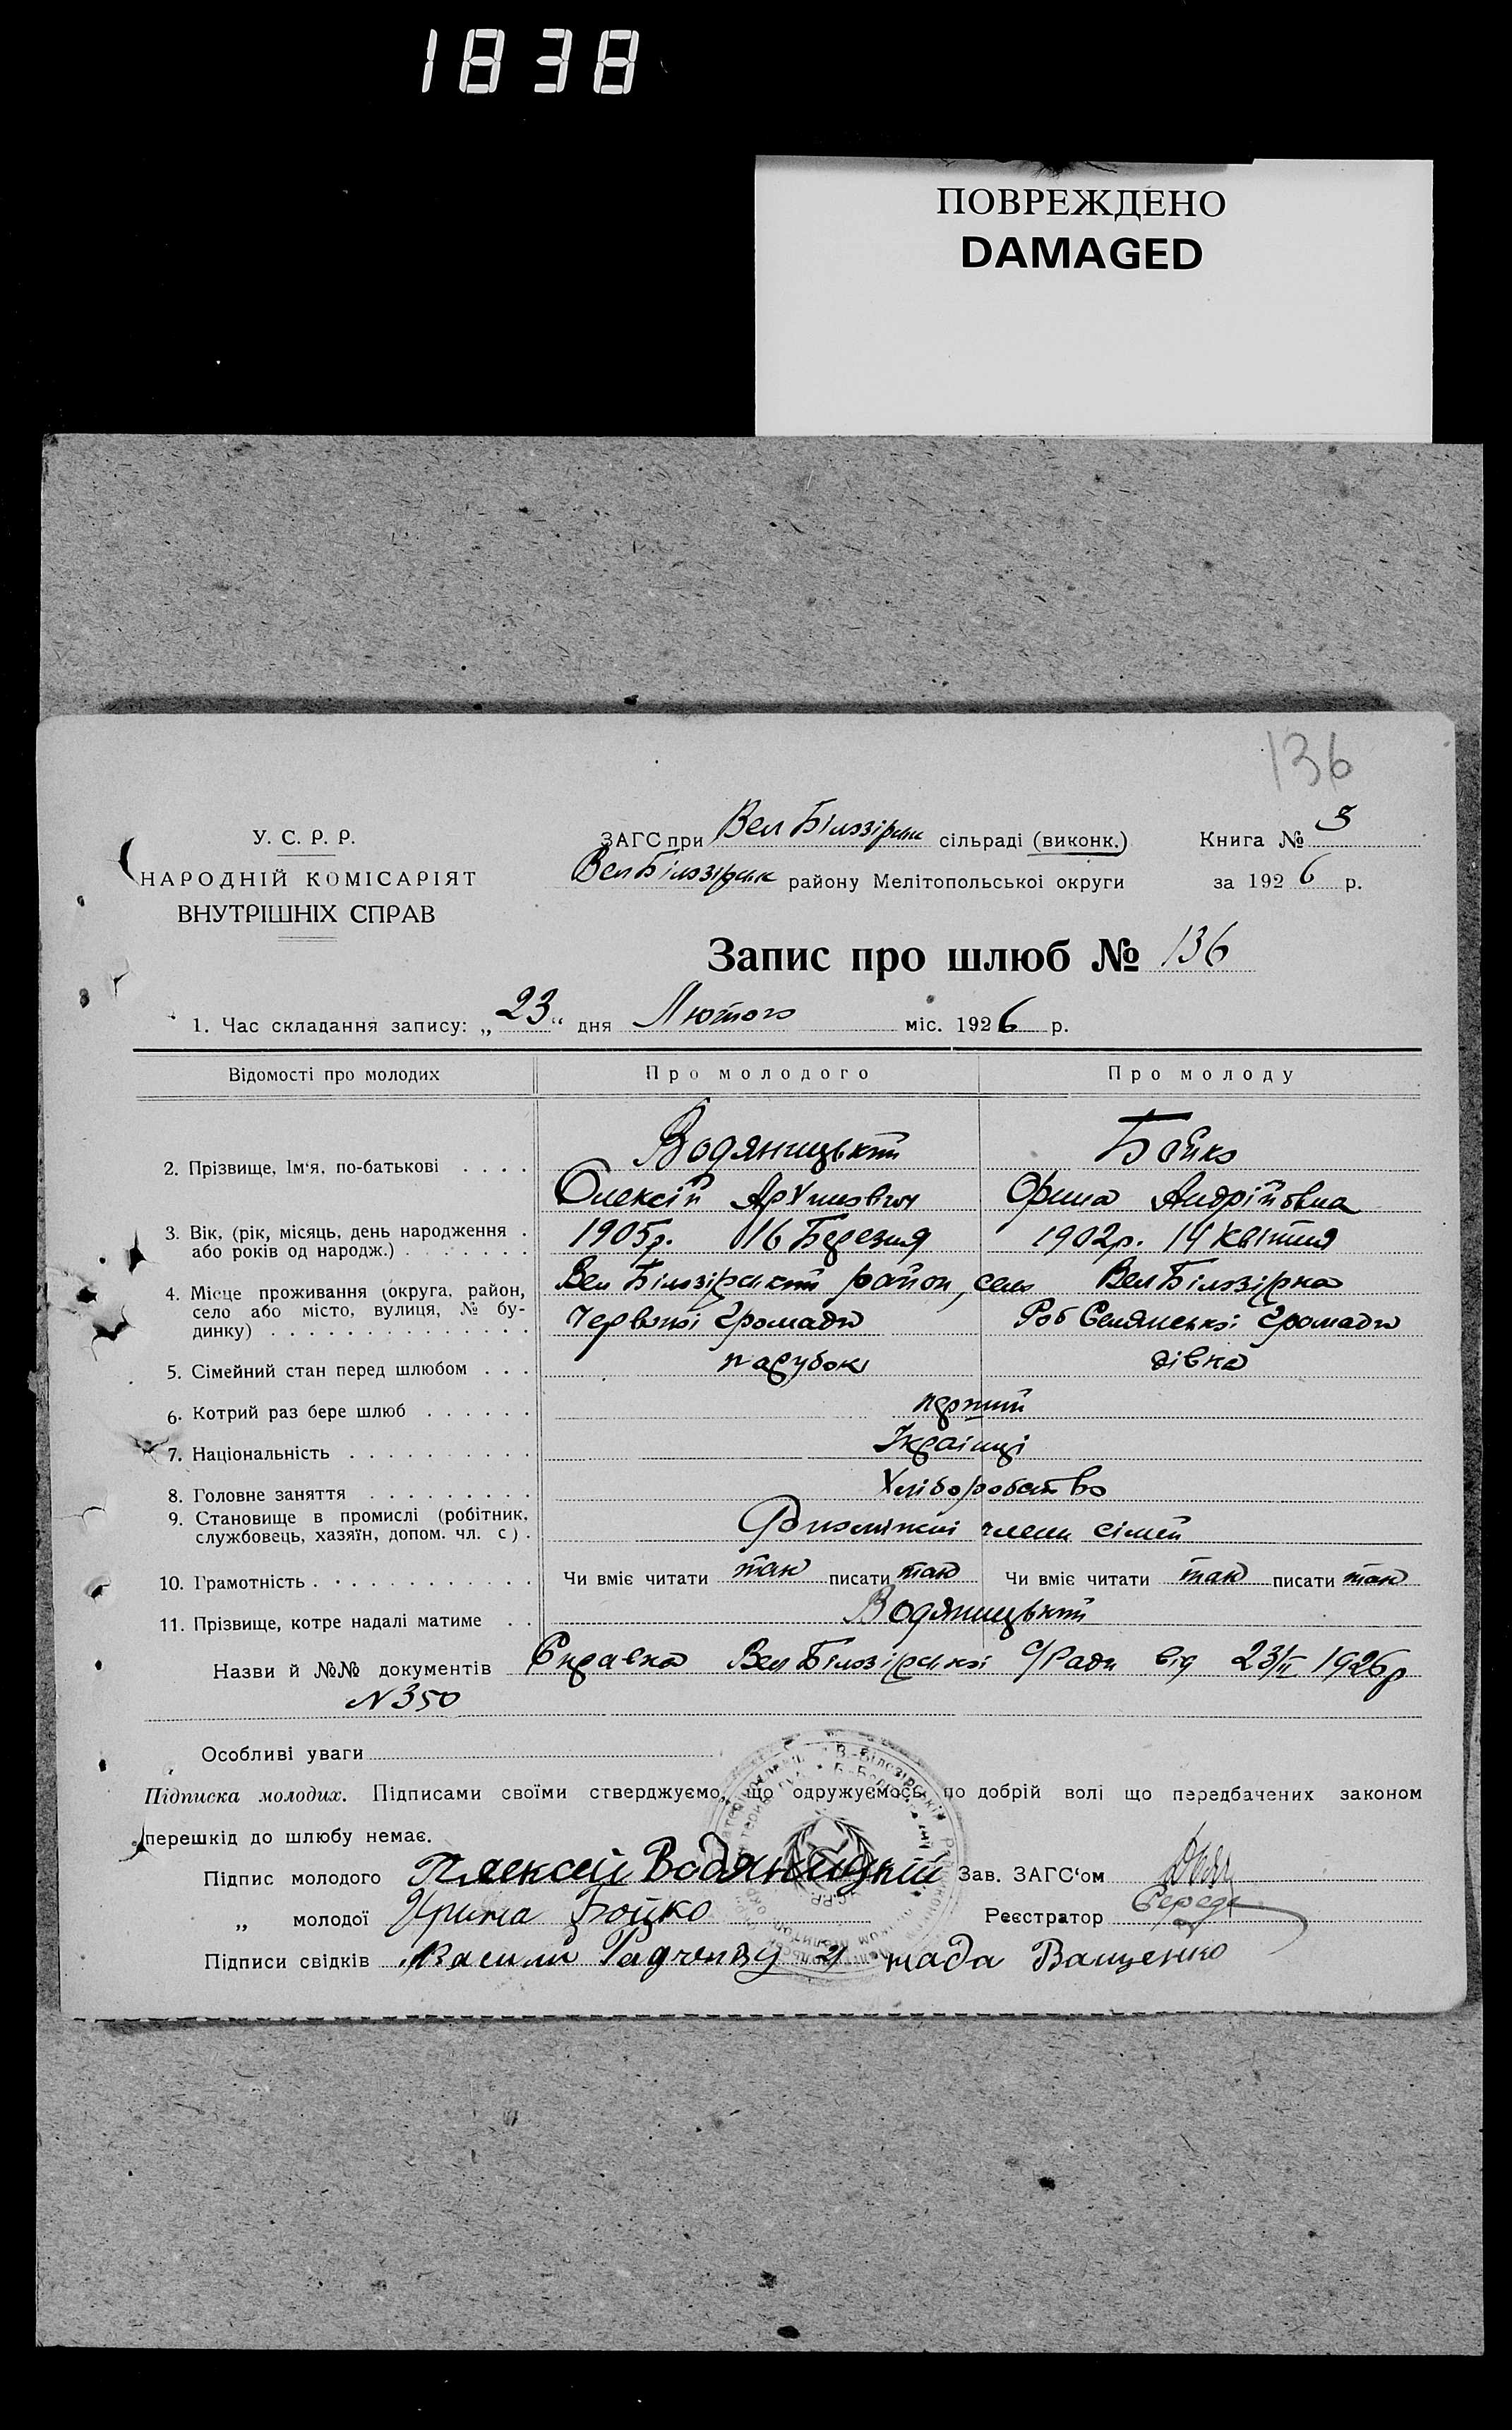 1838
ПОВРЕЖДЕНО
DAMAGED
136
У. С. Р. Р.
НАРОДНІЙ КОМІСАРІЯТ
ВНУТРІШНІХ СПРАВ
ЗАГС при Вел Білозірськ сільраді (виконк.)
Вел Білозірськ району Мелітопольської округи
Книга № 3
за 1926 р.
Запис про шлюб № 136
1. Час складання запису: „23“ дня Лютого міс. 1926 р.
Відомості про молодих Про молодого Про молоду
2. Прізвище, Ім'я, по-батькові . . . . Водяницький Бойко
Олексій Орина Андріївна
3. Вік, (рік, місяць, день народження . 1905р. 16 Березня 1902р. 14 Квітня
або років од народж.) . . . . . . .
4. Місце проживання (округа, район, Вел Білозірський район, село Вел Білозірка
село або місто, вулиця, № бу- Червоної Громади Роб Селянської Громади
динку) . . . . . . . . . . . . . .
5. Сімейний стан перед шлюбом . . . парубок дівка
6. Котрий раз бере шлюб . . . . . . перший
7. Національність . . . . . . . . . . Українці
8. Головне заняття . . . . . . . . . Хліборобство
9. Становище в промислі (робітник, члени сімей
службовець, хазяїн, допом. чл. с) .
10. Грамотність . . . . . . . . . . . . Чи вміє читати так писати так Чи вміє читати так писати так
11. Прізвище, котре надалі матиме . . Водяницький
Назви й №№ документів Справка Вел Білозірської С/Ради від 23/II 1926р
N 350
Особливі уваги
Підписка молодих. Підписами своїми стверджуємо, що одружуємось по добрій волі що передбачених законом
перешкід до шлюбу немає.
Підпис молодого Алексей Водяницкий Зав. ЗАГС'ом
„ молодої Ирина Бойко Реєстратор Середа
Підписи свідків Василь Радченко Ващенко